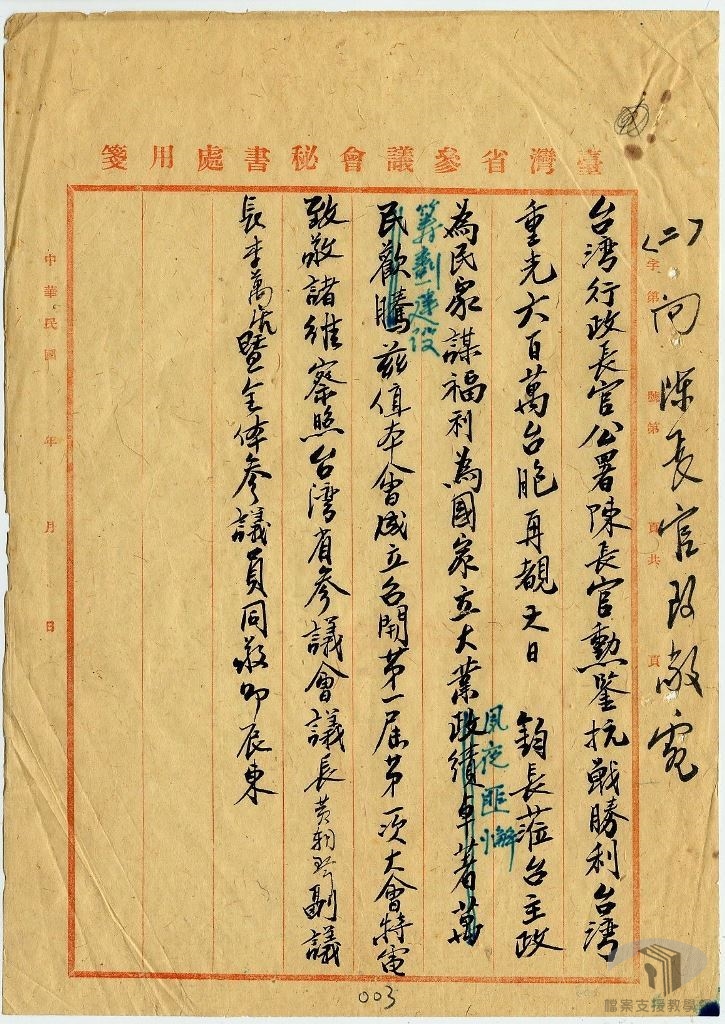 臺灣省參議會秘書處用箋
字第 號第 頁共 頁
(二)向陳長官致敬電
台湾行政長官公署陳長官勳鑒抗战勝利台湾
重光六百萬台胞再覩天日 鈞長蒞台主政
夙夜匪懈
為民眾謀福利為國家立大業政績卓著萬
籌劃建設
民歡騰茲值本會成立召開第一屆第一次大會特電
致敬諸維察照台湾省参議會議長黃朝琴副議
長李萬居暨全体参議員同敬叩辰東
中華民國 年 月 日
003
檔案支援教學網